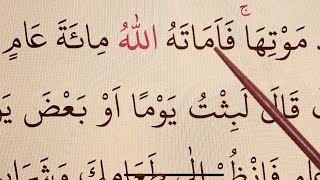 مَوْتِهَاۚ فَاَمَاتَهُ اللّٰهُ مِائَةَ عَامٍ
قَالَ لَبِثْتُ يَوْمًا اَوْ بَعْضَ
فَانْظُرْ اِلٰى طَعَامِكَ وَشَرَابِ